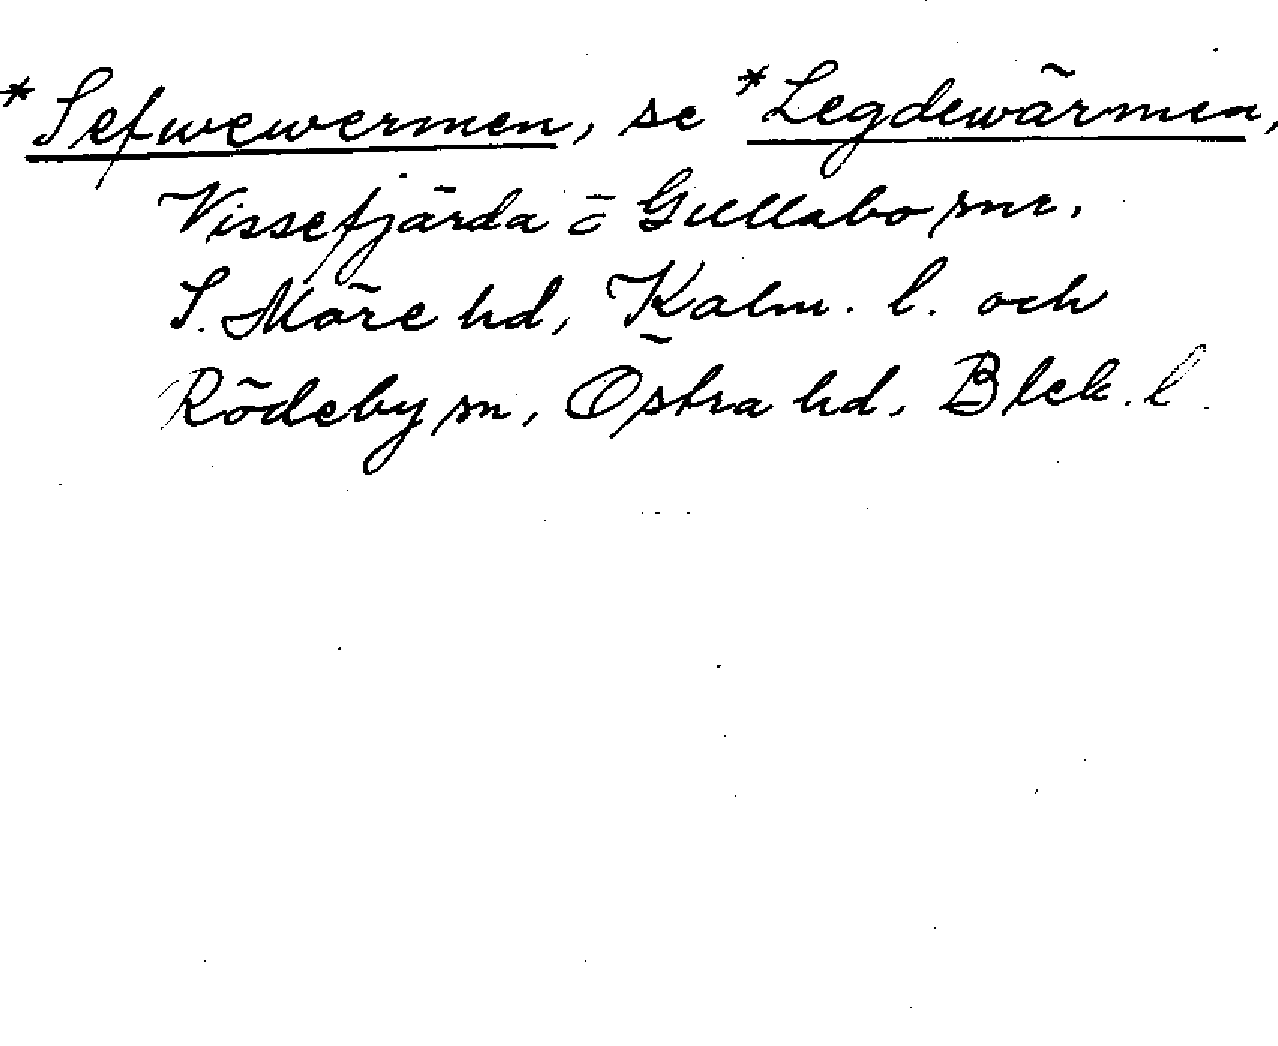 *Sefwewermen, se *Legdewärmen,
Vissefjärda o Gullabo snr.
S. Möre hd, Kalm. l. och
Rödeby sn, Östra hd, Blek. l.